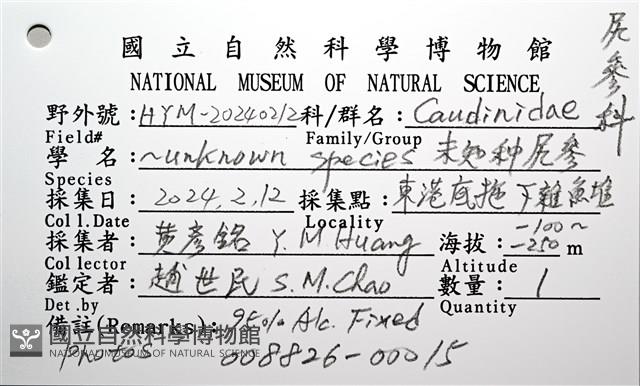 國立自然科學博物館
NATIONAL MUSEUM OF NATURAL SCIENCE
尻參科
野外號：HYM-20240212 科/群名：Caudinidae
Field# Family/Group
學名：~unknown species 未知种尻參
Species
採集日：2024.2.12 採集點：東港底拖下雜魚堆
Coll.Date Locality
採集者：黃彥銘 Y.M Huang 海拔：-100~-250 m
Collector Altitude
鑑定者：趙世民 S.M.Chao 數量：1
Det.by Quantity
備註(Remarks)：95% Alc. Fixed
國立自然科學博物館
NATIONAL MUSEUM OF NATURAL SCIENCE
Photos 008826-00015